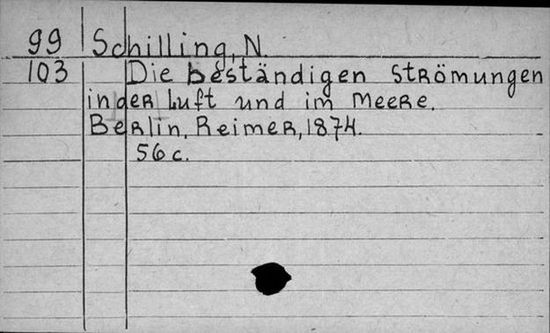 99 Schilling, N.
103 Die beständigen Strömungen
in der Luft und im Meere.
Berlin, Reimer, 1874.
56 c.